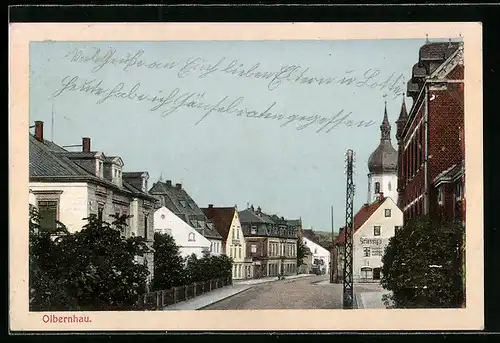 Viele Grüße an Euch lieben Eltern u. Lotti
Heute habe ich Gänsebraten gegessen
Olbernhau.